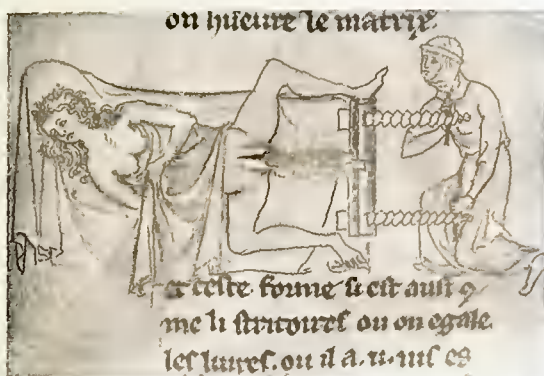 on hueure le matrix
et ceste forme si est ausi ꝯ
me li stritoires ou on egale
les liures. ou il a .ii. uis es